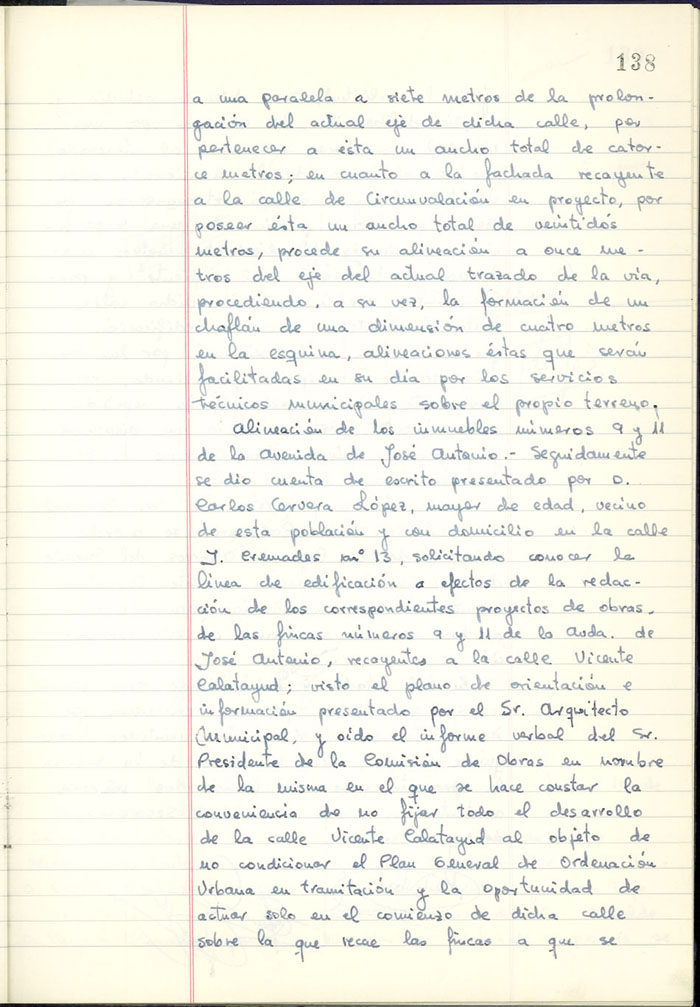 138
a una paralela a siete metros de la prolon-
gación del actual eje de dicha calle, por
pertenecer a ésta un ancho total de cator-
ce metros; en cuanto a la fachada recayente
a la calle de Circunvalación en proyecto, por
poseer ésta un ancho total de veintidós
metros, procede su alineación a once me-
tros del eje del actual trazado de la vía,
procediendo, a su vez, la formación de un
chaflán de una dimensión de cuatro metros
en la esquina, alineaciones éstas que serán
facilitadas en su día por los servicios
técnicos municipales sobre el propio terreno.
Alineación de los inmuebles números 9 y 11
de la Avenida de José Antonio.- Seguidamente
se dio cuenta de escrito presentado por D.
Carlos Cervera López, mayor de edad, vecino
de esta población y con domicilio en la calle
J. Cremades nº 13, solicitando conocer la
línea de edificación a efectos de la redac-
ción de los correspondientes proyectos de obras,
de las fincas números 9 y 11 de la Avda. de
José Antonio, recayentes a la calle Vicente
Calatayud; visto el plano de orientación e
información presentado por el Sr. Arquitecto
Municipal, y oído el informe verbal del Sr.
Presidente de la Comisión de Obras en nombre
de la misma en el que se hace constar la
conveniencia de no fijar todo el desarrollo
de la calle Vicente Calatayud al objeto de
no condicionar el Plan General de Ordenación
Urbana en tramitación y la oportunidad de
actuar solo en el comienzo de dicha calle
sobre la que recae las fincas a que se